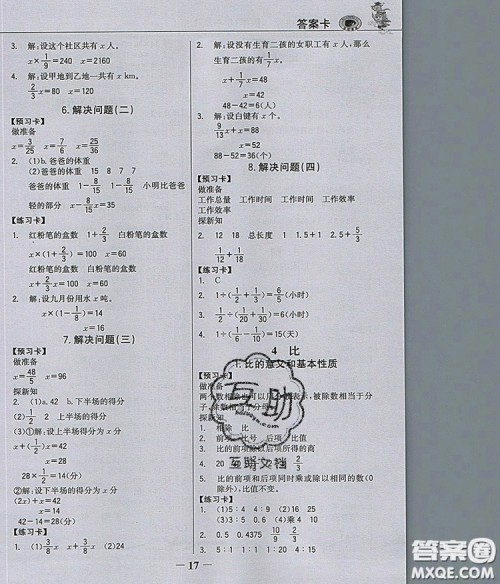 答案卡
3. 解:设这个社区共有 x 人。
x×1/9=240  x=2160
4. 解:设甲地到乙地一共有 x km。
2/3x=80  x=120
6.解决问题(二)
【预习卡】
做准备
x=3/25  x=7/6  x=25/36
2. (1)b. 爸爸的体重
(2)爸爸的体重 15 8 7 7
爸爸的体重 1-8/15 1-8/15 小明比爸爸
轻的部分 x-8/15x=35
【练习卡】
1. 红粉笔的盒数 1+2/3 白粉笔的盒数
x×(1+2/3)=100  x=60
红粉笔的盒数 白粉笔的盒数
x+2/3x=100  x=60
2. 解:设九月份用水 x 吨。
x×(1-1/8)=14  x=16
7.解决问题(三)
【预习卡】
做准备
x=48/5  x=96
探新知
2. (1)a. 42 b. 下半场的得分
(2)1/2 2 下半场的得分 上半场的得分
(3)①解:设上半场的得分为 x 分
x+1/2x=42  x=28
28×1/2=14(分)
②解:设下半场的得分为 x 分
2x+x=42  x=14
42-14=28(分)
【练习卡】
1. (1)3/8x  x+3/8x  (2)x-2/5x
2. 解:设没有生育二孩的女职工有 x 人,那么
生育二孩的有1/7x人。
x+1/7x=48
x=42
48-42=6(人)
3. 解:设白键有 x 个。
9/13x+x=88
x=52
88-52=36(个)
8.解决问题(四)
【预习卡】
做准备
工作总量 工作时间 工作时间 工作效率
工作效率
探新知
2. 12 18 总长度 1 1.5+1 2.5+5/3
1/12+1/18
【练习卡】
1. C
2. 1÷(1/2+1/3)=6/5(小时)
3. 1/2÷(1/20+1/30)=6(小时)
4. 1÷(1/6-1/10)=15(天)
4 比
1.比的意义和基本性质
【预习卡】
做准备
探新知
1. 相除 比
2. 前项 比号 后项 比值
3. 比的前项和后项同时乘或除以相同的数(0
除外),比值不变。
【练习卡】
1. (1)5:4
(3)3:5 0.6 (4)乘 4 10
2. 0.5 0.4375
3. 1:2 8:9 8:5 10:1
互助
互助文档
17
答案圈
MXQE.COM